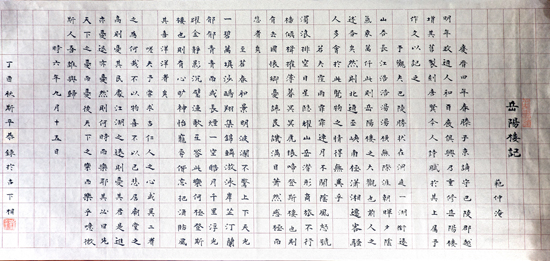 岳陽樓記
範仲淹
慶曆四年春滕子京謫守巴陵郡越
明年政通人和百廢俱興乃重修岳陽樓
增其舊制刻唐賢今人詩賦於其上屬予
作文以記之
予觀夫巴陵勝狀在洞庭一湖銜遠
山吞長江浩浩湯湯橫無際涯朝暉夕陰
氣象萬千此則岳陽樓之大觀也前人之
述備矣然則北通巫峽南極瀟湘遷客騷
人多會於此覽物之情得無異乎
若夫霪雨霏霏連月不開陰風怒號
濁浪排空日星隱耀山岳潛形商旅不行
檣傾楫摧薄暮冥冥虎嘯猿啼登斯樓也則
有去國懷鄉憂讒畏譏滿目蕭然感極而
悲者矣
至若春和景明波瀾不驚上下天光
一碧萬頃沙鷗翔集錦鱗游泳岸芷汀蘭
郁郁青青而或長煙一空皓月千里浮光
躍金靜影沉璧漁歌互答此樂何極登斯
樓也則有心曠神怡寵辱偕忘把酒臨風
其喜洋洋者矣
嗟夫予嘗求古仁人之心或異二者
之為何哉不以物喜不以己悲居廟堂之
高則憂其民處江湖之遠則憂其君是進
亦憂退亦憂然則何時而樂耶其必曰先
天下之憂而憂後天下之樂而樂乎噫微
斯人吾誰與歸
時六年九月十五日
丁酉秋斯平恭錄於古下相